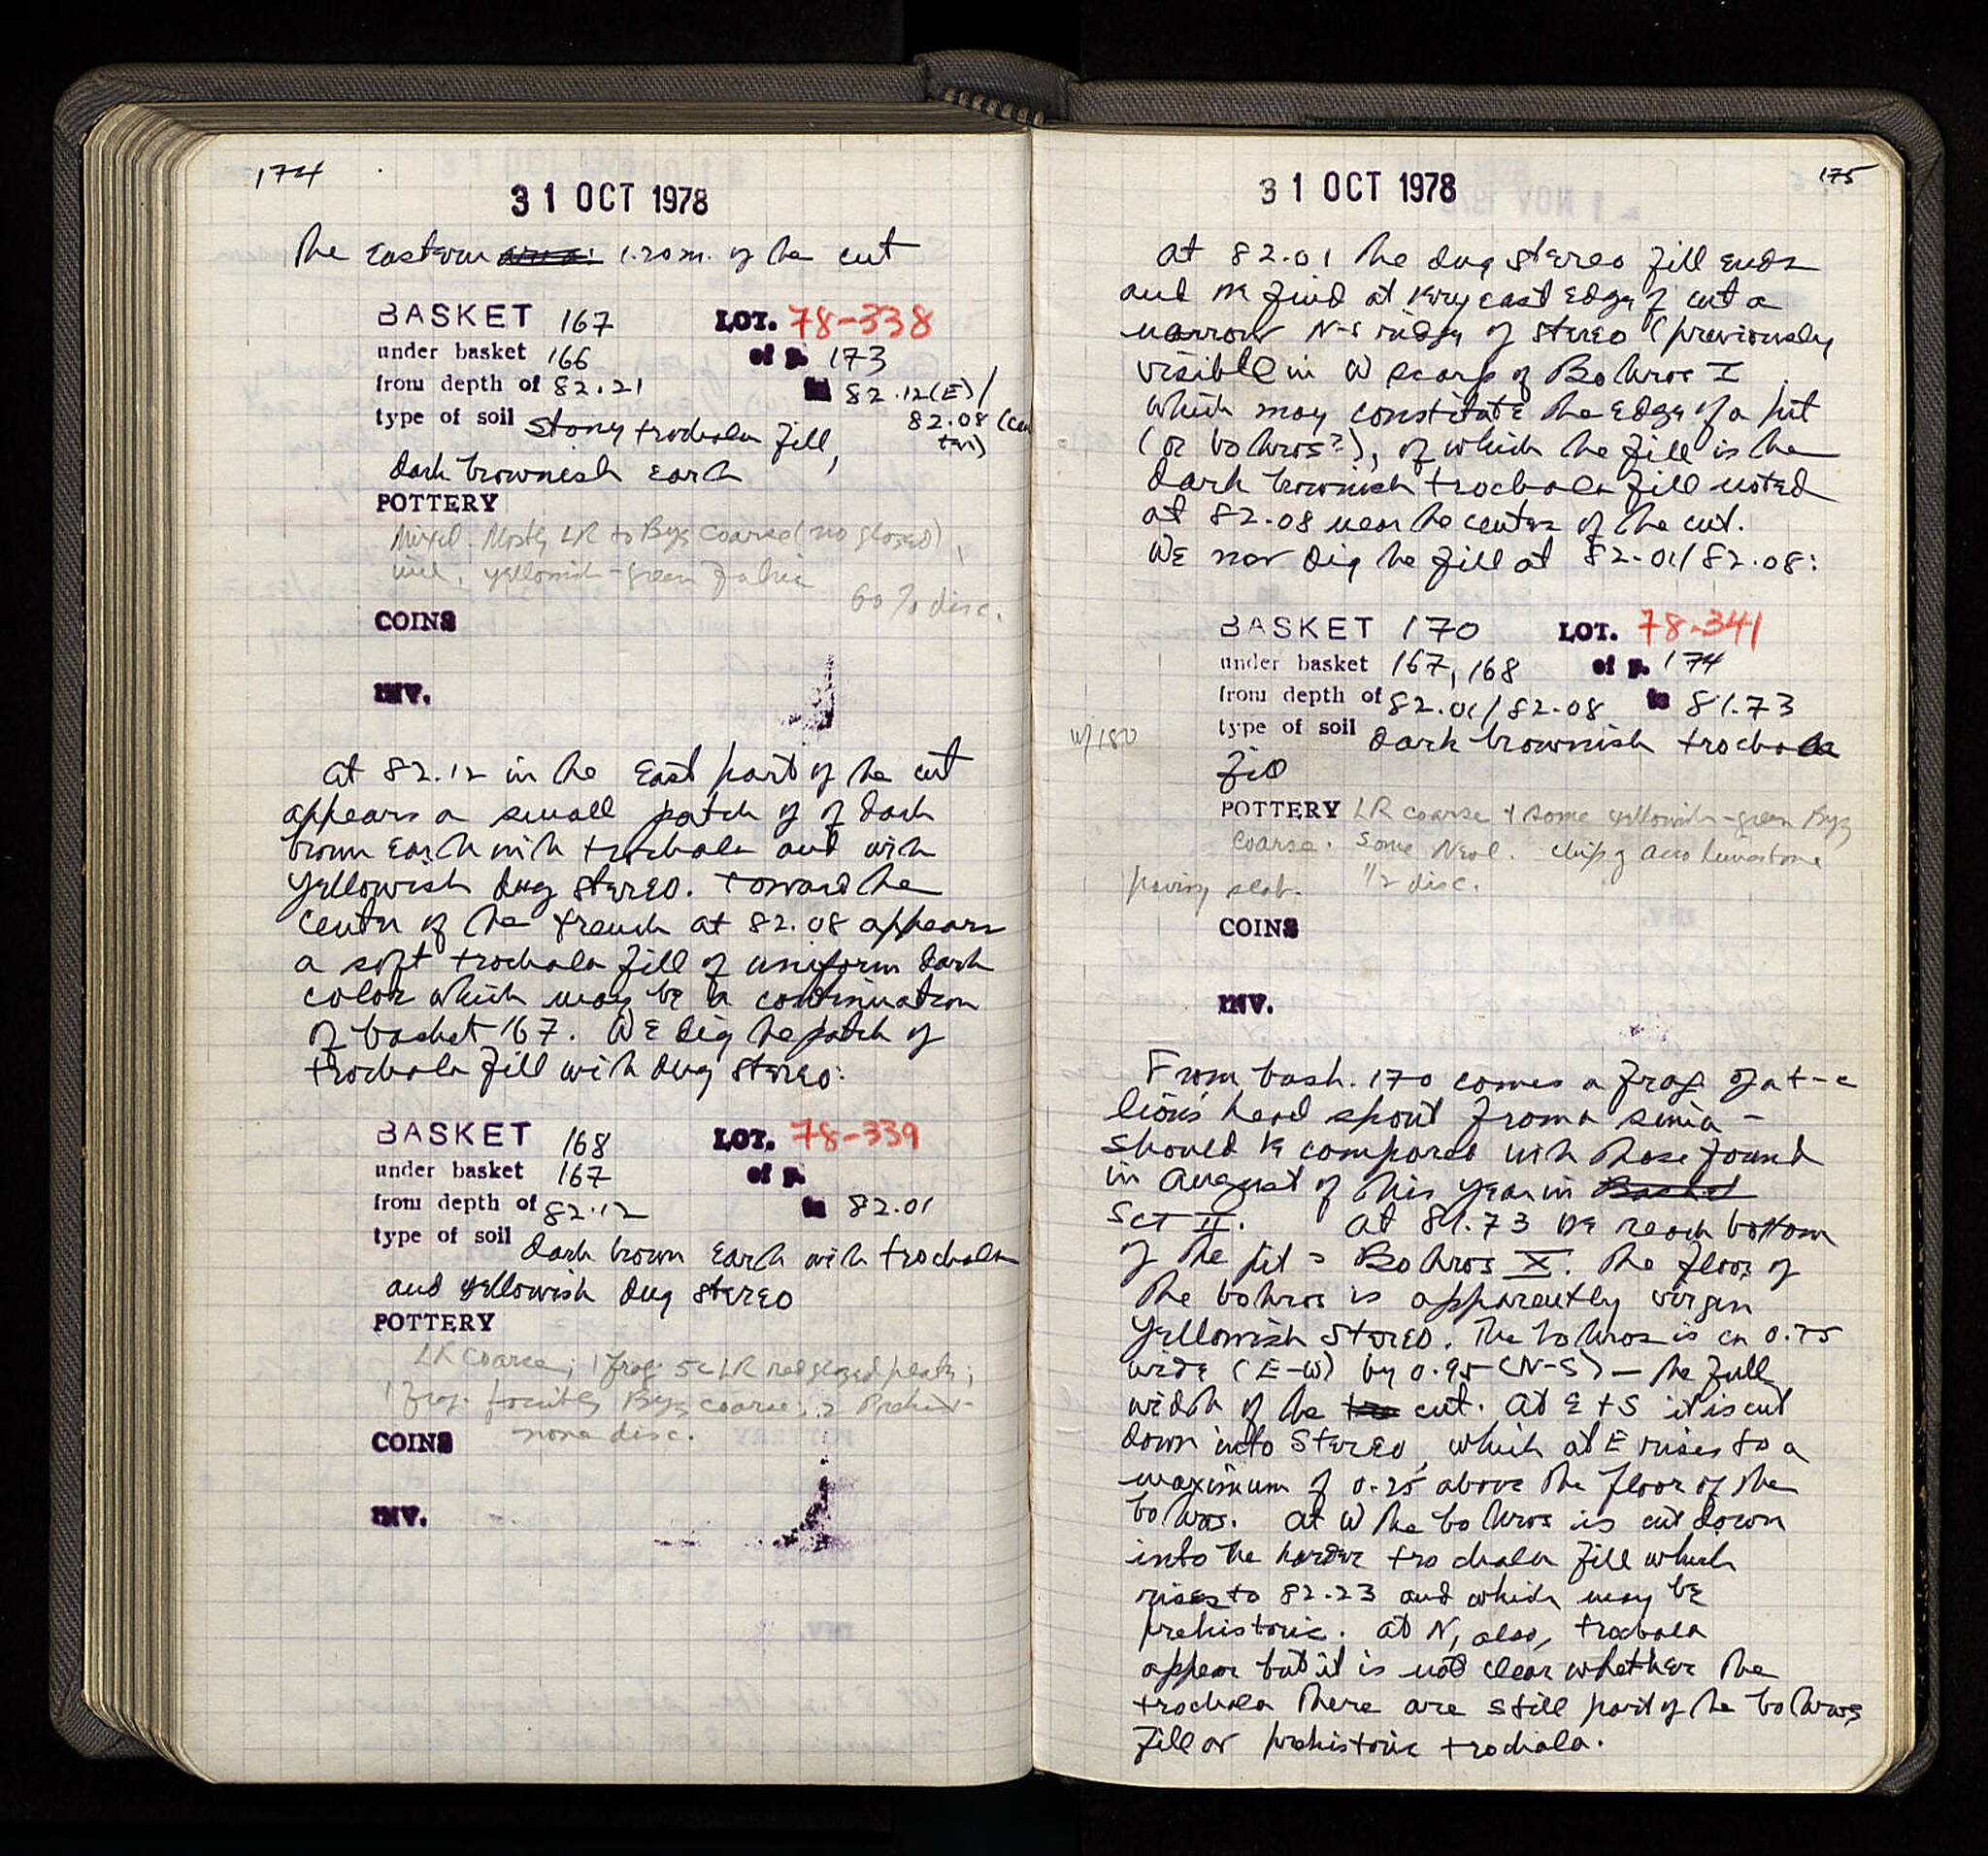 174
31 OCT 1978
The Eastern 1.20 m. of the cut
BASKET 167 LOT. 78-338
under basket 166 of p. 173
from depth of 82.21 to 82.12 (E) /
82.08 (cen
ter)
type of soil stony trochala fill,
dark brownish earth
POTTERY
Mixed. Mostly LR to Byz coarse (no glazed),
incl. yellowish-green fabric
60% disc.
COINS
INV.
At 82.12 in the East part of the cut
appears a small patch of of dark
brown earth with trochala and with
yellowish dug stereo. Toward the
center of the trench at 82.08 appears
a soft trochala fill of uniform dark
color which may be a continuation
of basket 167. We dig the patch of
trochala fill with dug stereo:
BASKET 168 LOT. 78-339
under basket 167 of p.
from depth of 82.12 to 82.01
type of soil dark brown earth with trochala
and yellowish dug stereo
POTTERY
LR coarse; 1 frag 5c LR red glazed plate;
1 frag. possibly Byz coarse; 2 Prehist-
none disc.
COINS
INV.
175
31 OCT 1978
At 82.01 the dug stereo fill ends
and we find at very east edge of cut a
narrow N-S ridge of stereo (previously
visible in W scarp of Bothros I
which may constitute the edge of a pit
(or bothros?), of which the fill is the
dark brownish trochala fill noted
at 82.08 near the center of the cut.
We now dig the fill at 82.01/82.08:
BASKET 170 LOT. 78-341
under basket 167, 168 of p. 174
from depth of 82.01/82.08 to 81.73
w/180
type of soil dark brownish trochala
fill
POTTERY LR coarse + some yellowish-green Byz
coarse. Some Neol. chip of acro limestone
paving slab. 1/2 disc.
COINS
INV.
From bask. 170 comes a frag of a t-c
lion's head spout from a sima -
should be compared with those found
in August of this year in
Sct II. At 81.73 we reach bottom
of the pit = Bothros X. The floor of
the bothros is apparently virgin
yellowish stereo. The bothros is ca 0.75
wide (E-W) by 0.95 (N-S) — the full
width of the cut. At E + S it is cut
down into stereo, which at E rises to a
maximum of 0.25 above the floor of the
bothros. At W the bothros is cut down
into the harder trochala fill which
rises to 82.23 and which may be
prehistoric. At N, also, trochala
appear but it is not clear whether the
trochala there are still part of the bothros
fill or prehistoric trochala.